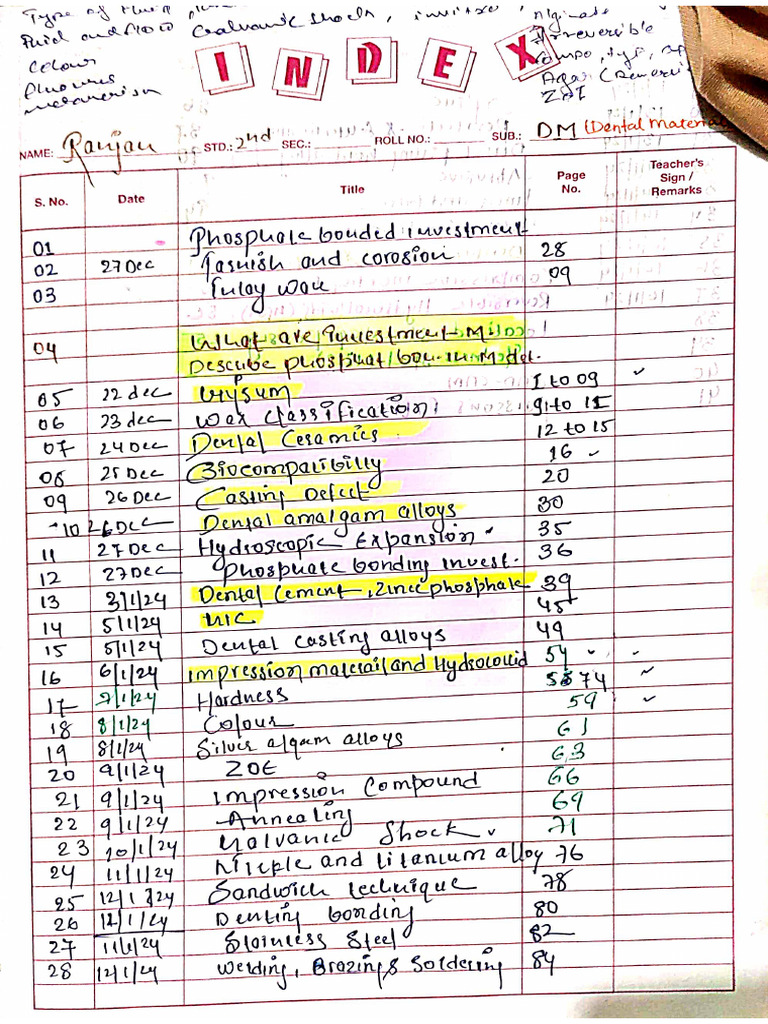 Type of
Fluid and flow Galvanic shock, invitro,
Colour
metamerism
Alginate
Irreversible
Compo, type,
Agar (Reversi
ZOE
INDEX
NAME: Ranjan STD.: 2nd SEC.: ROLL NO.: SUB.: DM (Dental Material
S. No. Date Title Page No. Teacher's Sign / Remarks
01 Phosphate bonded investment
02 27 Dec Tarnish and corosion 28
03 Inlay wax 09
04 What are Investment
Describe phosphat/
05 22 dec Gypsum 1 to 09
06 23 dec Wax classification 91 to 11
07 24 Dec Dental Ceramics 12 to 15
08 25 Dec Biocompatibilly 16
09 26 Dec Casting Defect 20
10 26 Dec Dental amalgam alloys 30
11 27 Dec Hydroscopic Expansion 35
12 27 Dec Phosphate bonding invest. 36
13 3/1/24 Dental Cement, Zinc phosphate 39
14 5/1/24 GIC 45
15 5/1/24 Dental casting alloys 49
16 6/1/24 Impression materail and Hydrocolloid 54
17 7/1/24 Hardness 58 74
18 8/1/24 Colour 59
19 8/1/24 Silver algam alloys 61
20 9/1/24 ZOE 63
21 9/1/24 Impression Compound 66
22 9/1/24 Annealing 69
23 10/1/24 Galvanic Shock 71
24 11/1/24 Nickle and titanium alloy 76
25 12/1/24 Sandwich technique 78
26 12/1/24 Dentin bonding 80
27 11/1/24 Stainless Steel 82
28 12/1/24 Welding, Brazing & Soldering 84